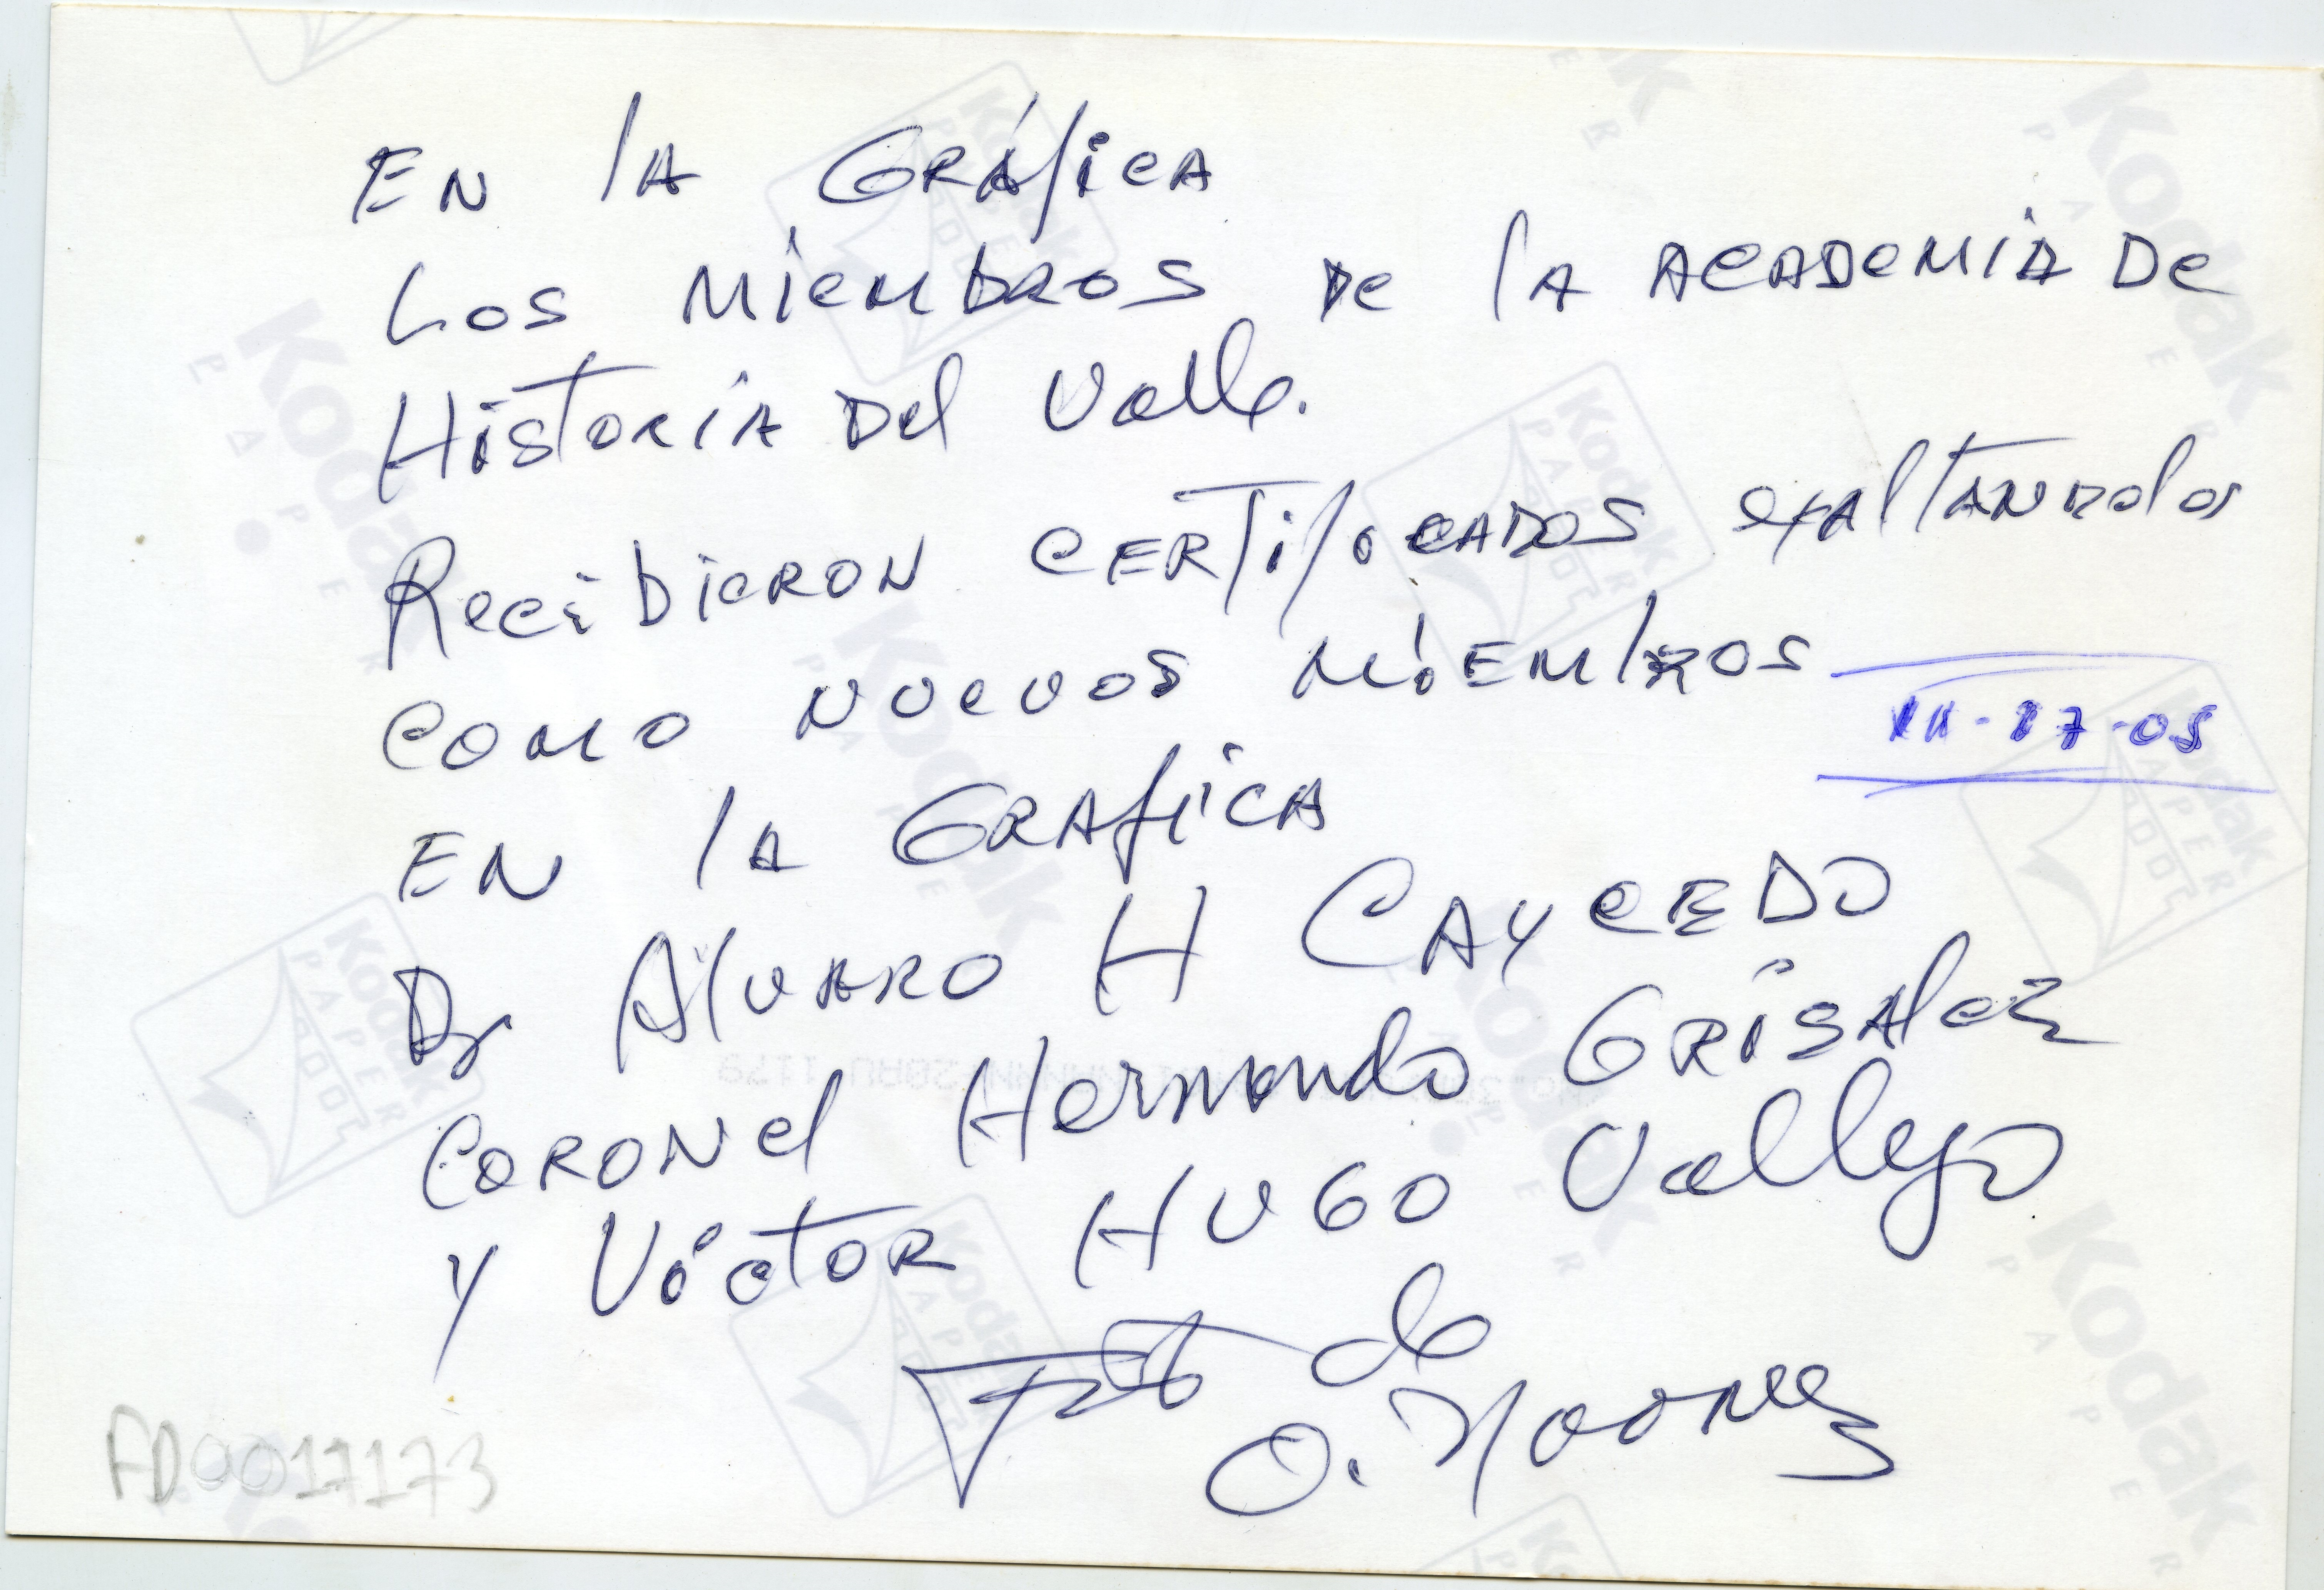 En la Gráfica
Los Miembros De la Academia De
Historia Del Valle.
Recibieron certificados exaltandolos
como nuevos Miembros
11-27-05
En la Grafica
Dr Alvaro H Caycedo
Coronel Hernando Grisalez
y Víctor Hugo Vallejo
de
O.
FD0017173
Kodak
PAPER